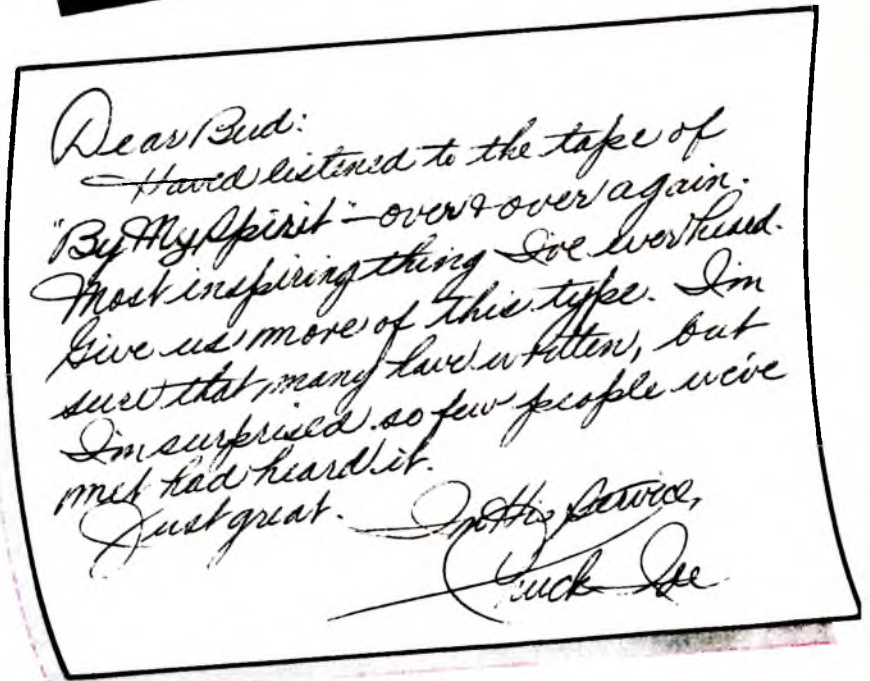 Dear Bud:
Have listened to the tape of
"By My Spirit" - over & over again.
Most inspiring thing I've ever heard.
Give us more of this type. I'm
sure that many have written, but
I'm surprised so few people we've
met had heard it.
Just great. In His Service,
Chuck